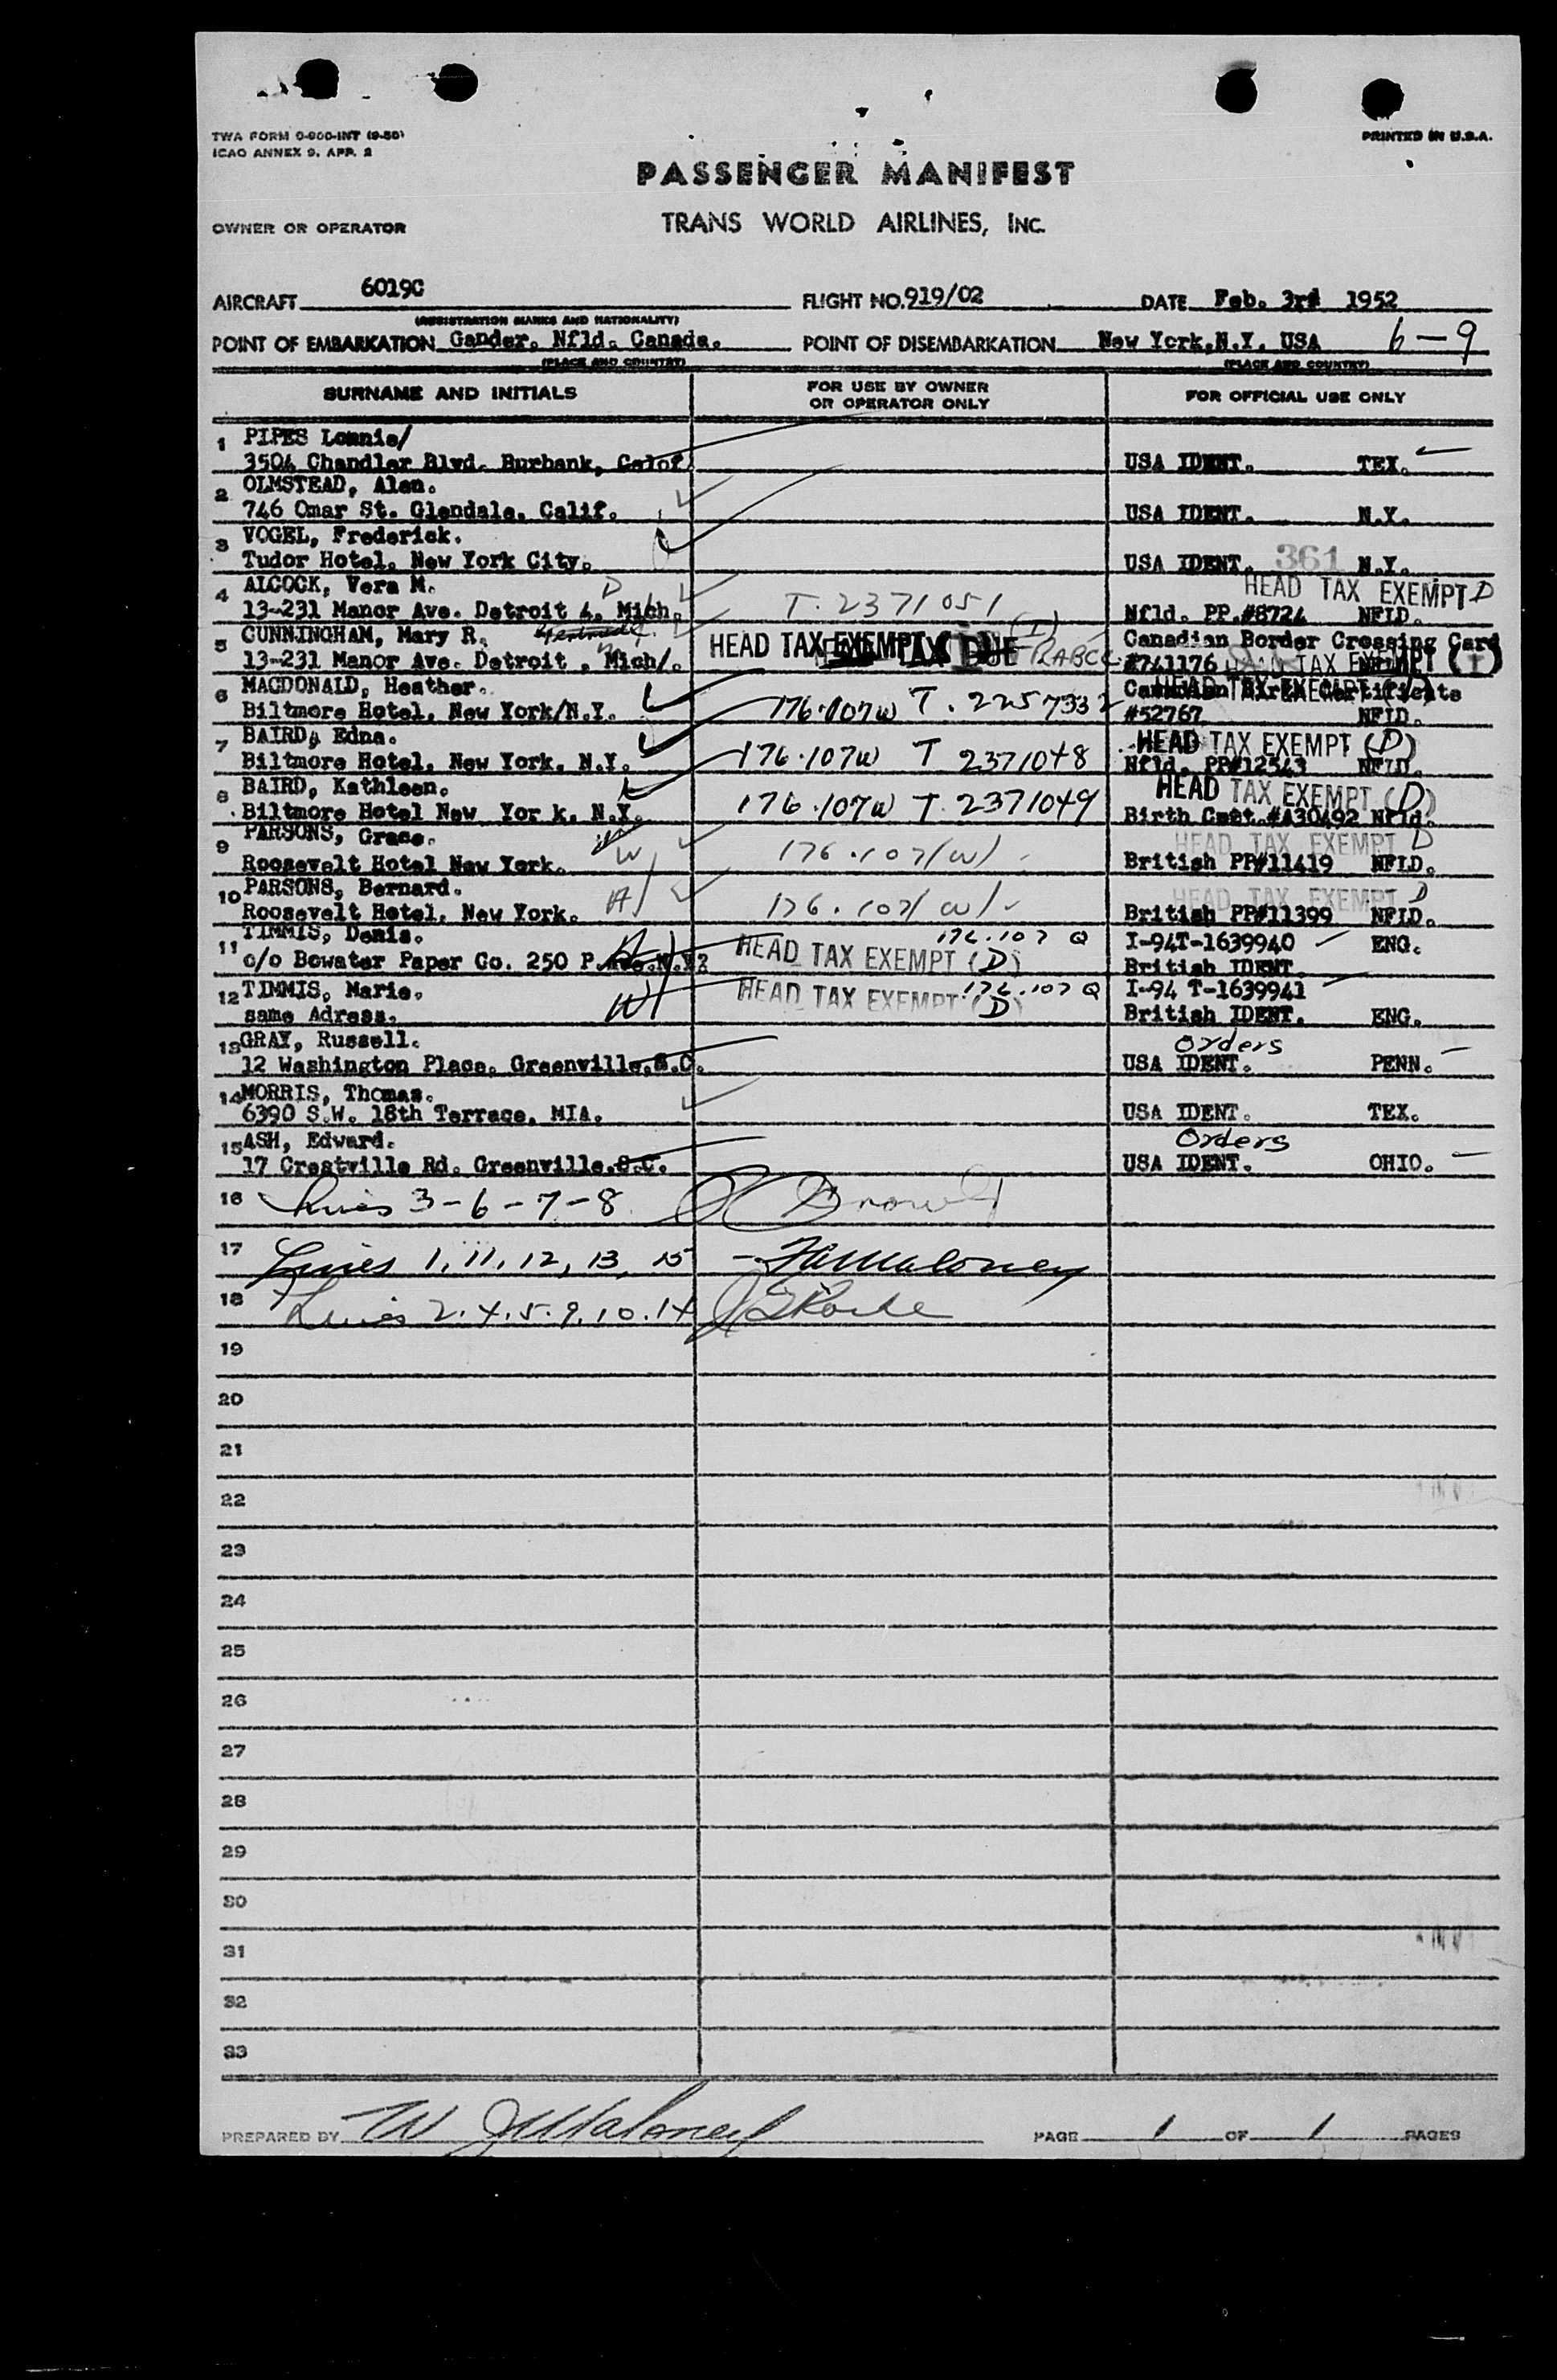 TWA FORM O-900-INT (9-50)
ICAO ANNEX 9, APP. 2
PRINTED IN U.S.A.
PASSENGER MANIFEST
OWNER OR OPERATOR
TRANS WORLD AIRLINES, INC.
AIRCRAFT 6019C FLIGHT NO. 919/02 DATE Feb. 3rd 1952
(REGISTRATION MARKS AND NATIONALITY)
POINT OF EMBARKATION Gander. Nfld. Canada. POINT OF DISEMBARKATION New York,N.Y. USA 6-9
(PLACE AND COUNTRY) (PLACE AND COUNTRY)
SURNAME AND INITIALS FOR USE BY OWNER OR OPERATOR ONLY FOR OFFICIAL USE ONLY
1 PIPES Lonnie/
3504 Chandler Blvd. Burbank, Calof. USA IDENT. TEX.
2 OLMSTEAD, Alan.
746 Omar St. Glendale. Calif. USA IDENT. N.Y.
3 VOGEL, Frederick.
Tudor Hotel. New York City. USA IDENT. 361 N.Y.
4 ALCOCK, Vera M. D HEAD TAX EXEMPT D
13-231 Manor Ave. Detroit 4. Mich. T.2371051 Nfld. PP.#8724 NFLD.
5 CUNNINGHAM, Mary R. HEAD TAX EXEMPT (I) TAX DUE RABCC Canadian Border Crossing Card
13-231 Manor Ave. Detroit . Mich/. #741176 HEAD TAX EXEMPT (I) NFLD.
6 MACDONALD, Heather. HEAD TAX EXEMPT Canadian Birth Certificate
Biltmore Hotel. New York/N.Y. 176.107W T. 2257332 #52767 NFLD.
7 BAIRD, Edna. HEAD TAX EXEMPT (D)
Biltmore Hotel. New York. N.Y. 176.107W T 2371048 Nfld. PP#12543 NFLD.
8 BAIRD, Kathleen. HEAD TAX EXEMPT (D)
Biltmore Hotel New Yor k. N.Y. 176.107W T. 2371049 Birth Cert.#A30492 Nfld.
9 PARSONS, Grace. HEAD TAX EXEMPT D
Roosevelt Hotel New York. W 176.107(W) British PP#11419 NFLD.
10 PARSONS, Bernard. HEAD TAX EXEMPT D
Roosevelt Hotel. New York. H 176.107(W) British PP#11399 NFLD.
11 TIMMIS, Denis. 176.107 Q I-94T-1639940 ENG.
c/o Bowater Paper Co. 250 P.Ave.N.Y? H HEAD TAX EXEMPT (D) British IDENT.
12 TIMMIS, Marie. 176.107 Q I-94 T-1639941
same Adress. W HEAD TAX EXEMPT (D) British IDENT. ENG.
13 GRAY, Russell. Orders
12 Washington Place. Greenville.S.C. USA IDENT. PENN.
14 MORRIS, Thomas.
6390 S.W. 18th Terrace. MIA. USA IDENT. TEX.
15 ASH, Edward. Orders
17 Crestville Rd. Greenville.S.C. USA IDENT. OHIO.
16 Lines 3-6-7-8
17 Lines 1, 11, 12, 13, 15 - Maloney
18 Lines 2.4.5.9.10.14
19
20
21
22
23
24
25
26
27
28
29
30
31
32
33
PREPARED BY PAGE 1 OF 1 PAGES